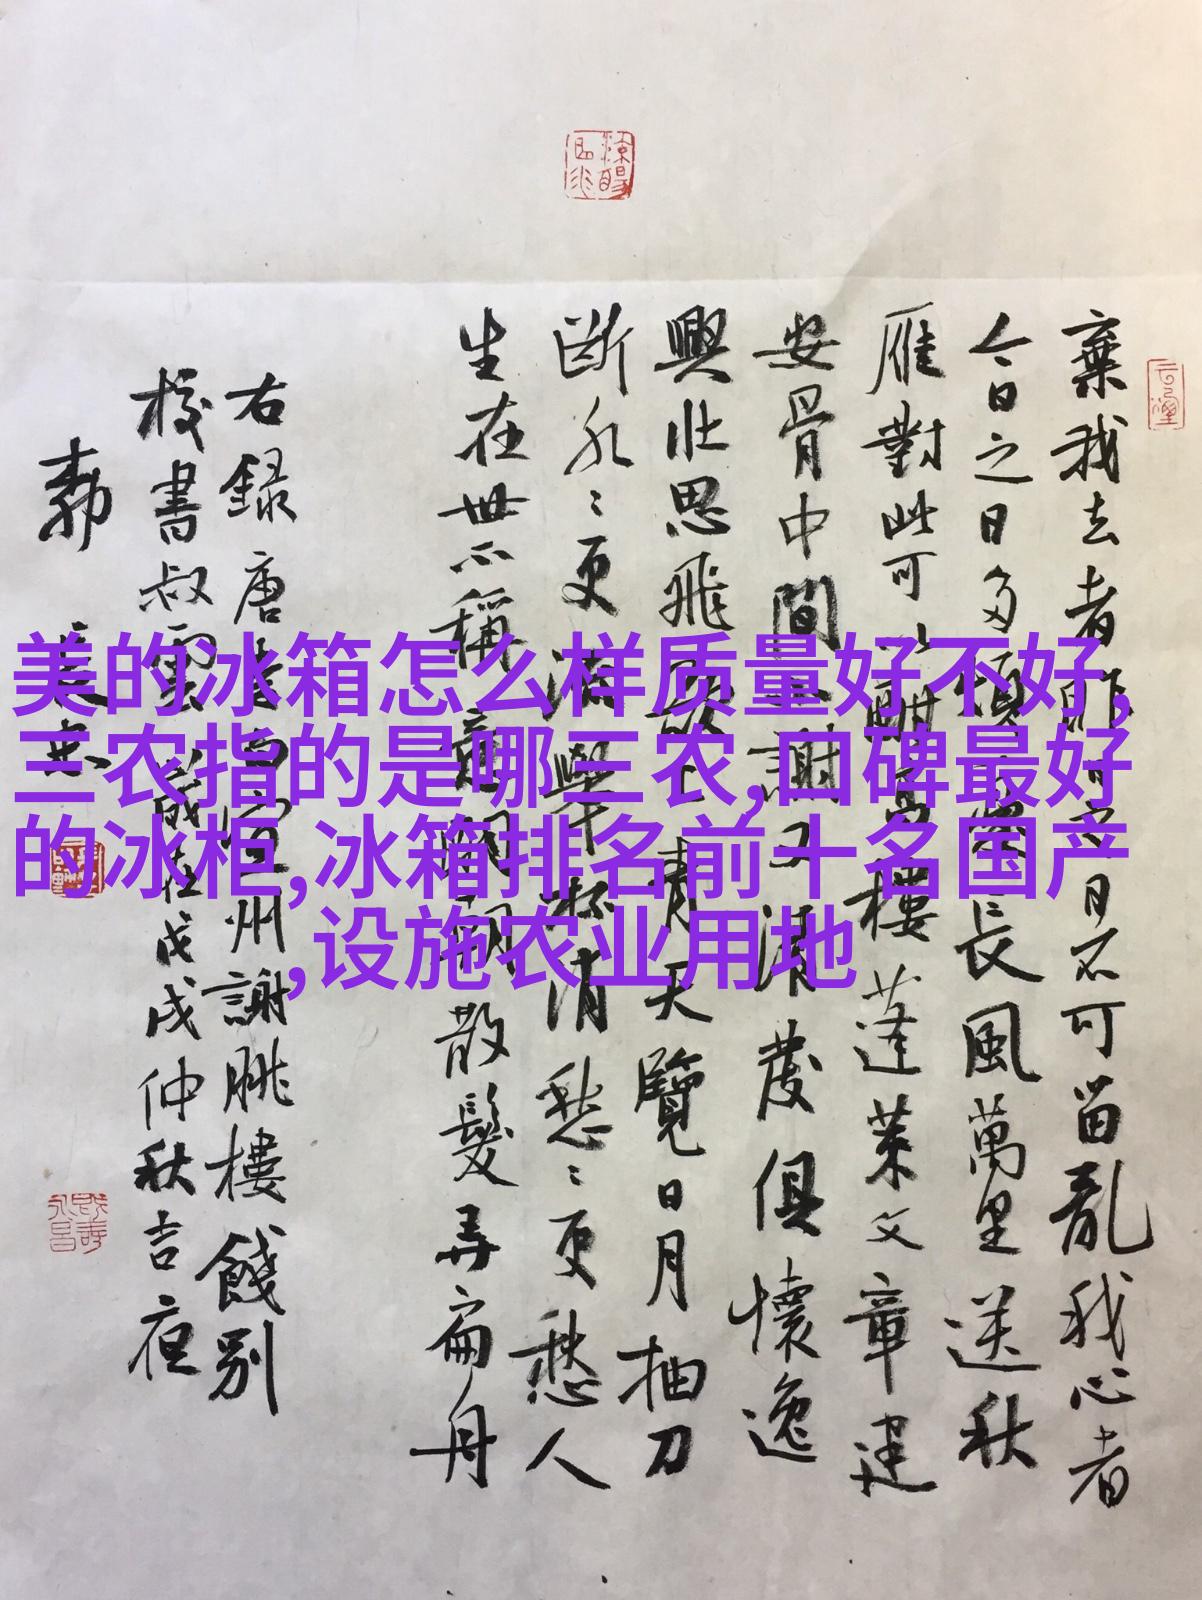 美的冰箱怎么样质量好不好,
三农指的是哪三农,口碑最好
的冰柜,冰箱排名前十名国产
,设施农业用地
棄我去者昨日之日不可留亂我心者
今日之日多煩憂長風萬里送秋
雁對此可以酣高樓蓬萊文章建
安骨中間小謝又清發俱懷逸
興壯思飛欲上青天覽日月抽刀
断水〻更流舉杯消愁〻更愁人
生在世不稱意明朝散髮弄扁舟
右録唐李白宣州謝朓樓餞別
校書叔雲歲在戊戌仲秋吉夜